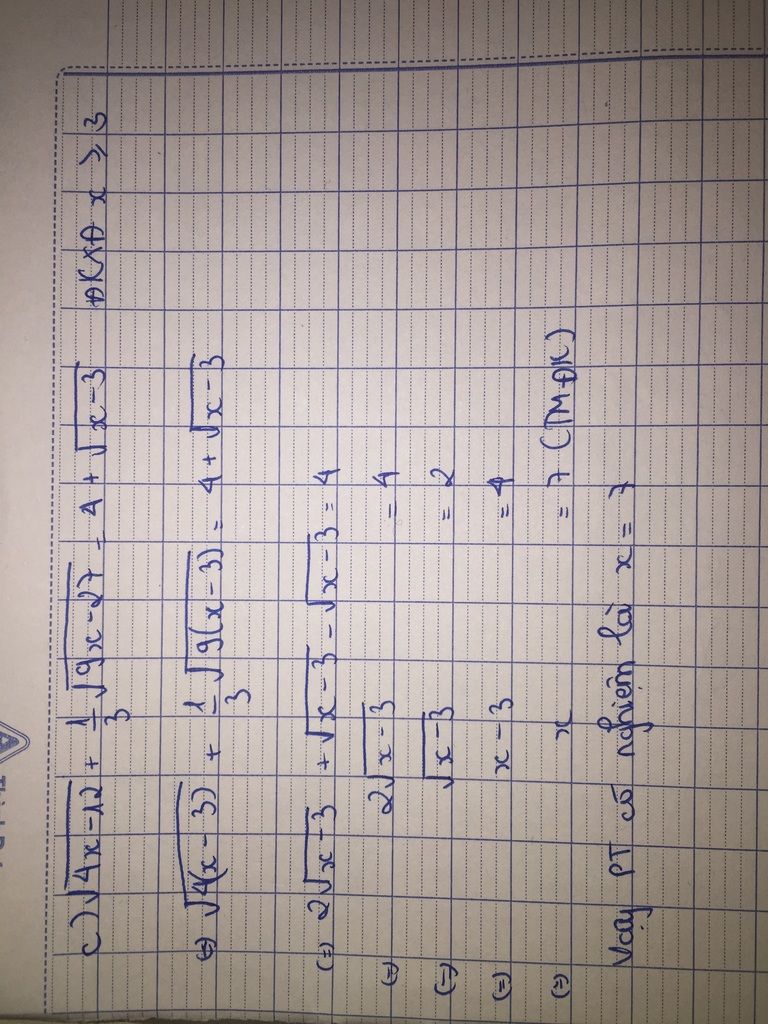 c) √4x-12 + 1/3 √9x-27 = 4 + √x-3 ĐKXĐ x ⩾ 3
(=) √4(x-3) + 1/3 √9(x-3) = 4 + √x-3
(=) 2√x-3 + √x-3 - √x-3 = 4
(=) 2√x-3 = 4
(=) √x-3 = 2
(=) x-3 = 4
(=) x = 7 (TMĐK)
Vậy PT có nghiệm là x = 7